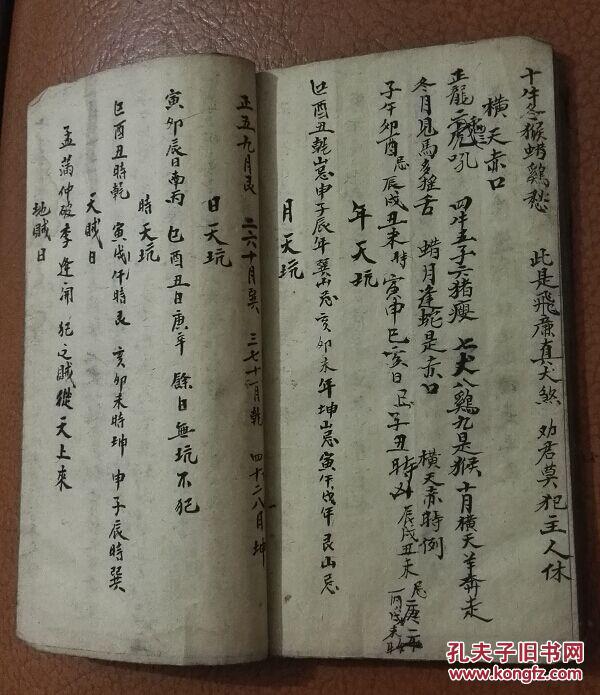 十牛冬猴蜡鷄愁　此是飛廉真大煞　劝君莫犯主人休
橫天赤口
正龍二虎吼　四牛五子六猪瘦　七犬八鷄九是猴　十月橫天羊奔走
冬月見馬多搖舌　蜡月逢蛇是赤口　橫天赤時例
子午卯酉忌辰戌丑未時　寅申巳亥日忌子丑時　辰戌丑未忌
年天坑
巳酉丑乾山忌　申子辰年巽山忌　亥卯未年坤山忌　寅午戌年艮山忌
月天坑
正五九月艮　二六十月巽　三七十一月乾　四十二八月坤
日天坑
寅卯辰日南丙　巳酉丑日庚辛　餘日無坑不犯
時天坑
巳酉丑時乾　寅戌午時艮　亥卯未時坤　申子辰時巽
天賊日
孟滿仲破季逢開　犯之賊從天上來
地賊日
孔夫子旧书网
www.kongfz.com